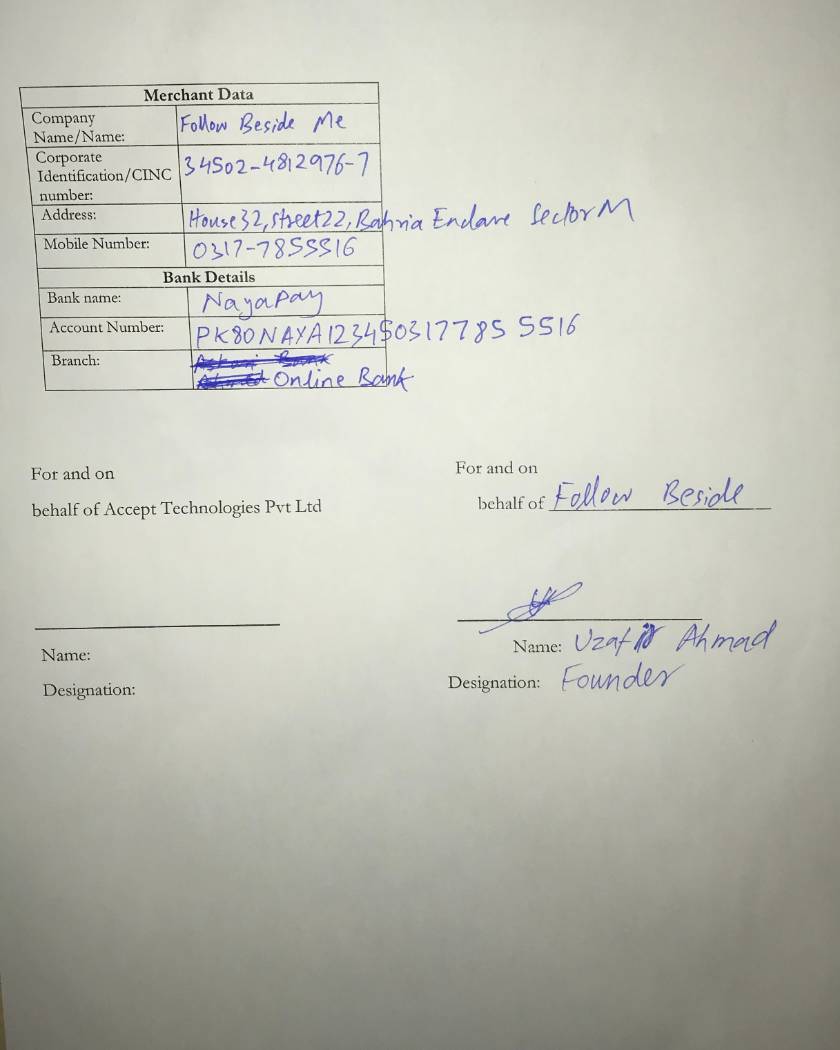 Merchant Data
Company
Name/Name:
Follow Beside Me
Corporate
Identification/CINC
number:
34502-4812976-7
Address:
House 32, street 22, Bahria Enclave Sector M
Mobile Number:
0317-7855516
Bank Details
Bank name:
Nayapay
Account Number:
PK80NAYA1234503177855516
Branch:
Online Bank
For and on
behalf of Accept Technologies Pvt Ltd
For and on
behalf of Follow Beside
Name:
Designation:
Name: Uzafir Ahmad
Designation: Founder